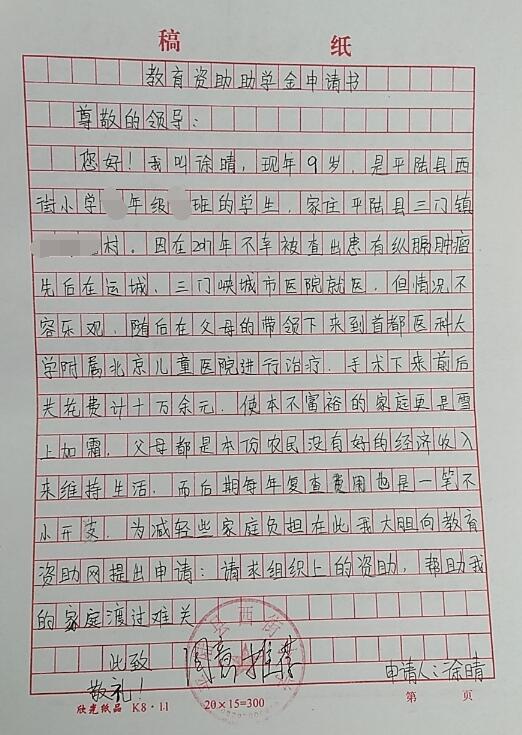 稿 纸
教育资助助学金申请书
尊敬的领导：
您好！我叫徐晴，现年9岁，是平陆县西
街小学 年级 班的学生，家住平陆县三门镇
村。因在2017年不幸被查出患有纵膈肿瘤
先后在运城、三门峡城市医院就医，但情况不
容乐观，随后在父母的带领下来到首都医科大
学附属北京儿童医院进行治疗，手术下来前后
共花费计十万余元，使本不富裕的家庭更是雪
上加霜，父母都是本份农民没有好的经济收入
来维持生活，而后期每年复查费用也是一笔不
小开支，为减轻些家庭负担在此我大胆向教育
资助网提出申请：请求组织上的资助，帮助我
的家庭渡过难关
此致 同意推荐 申请人：徐晴
敬礼！
欣光纸品 K8·11 20×15=300 第 页